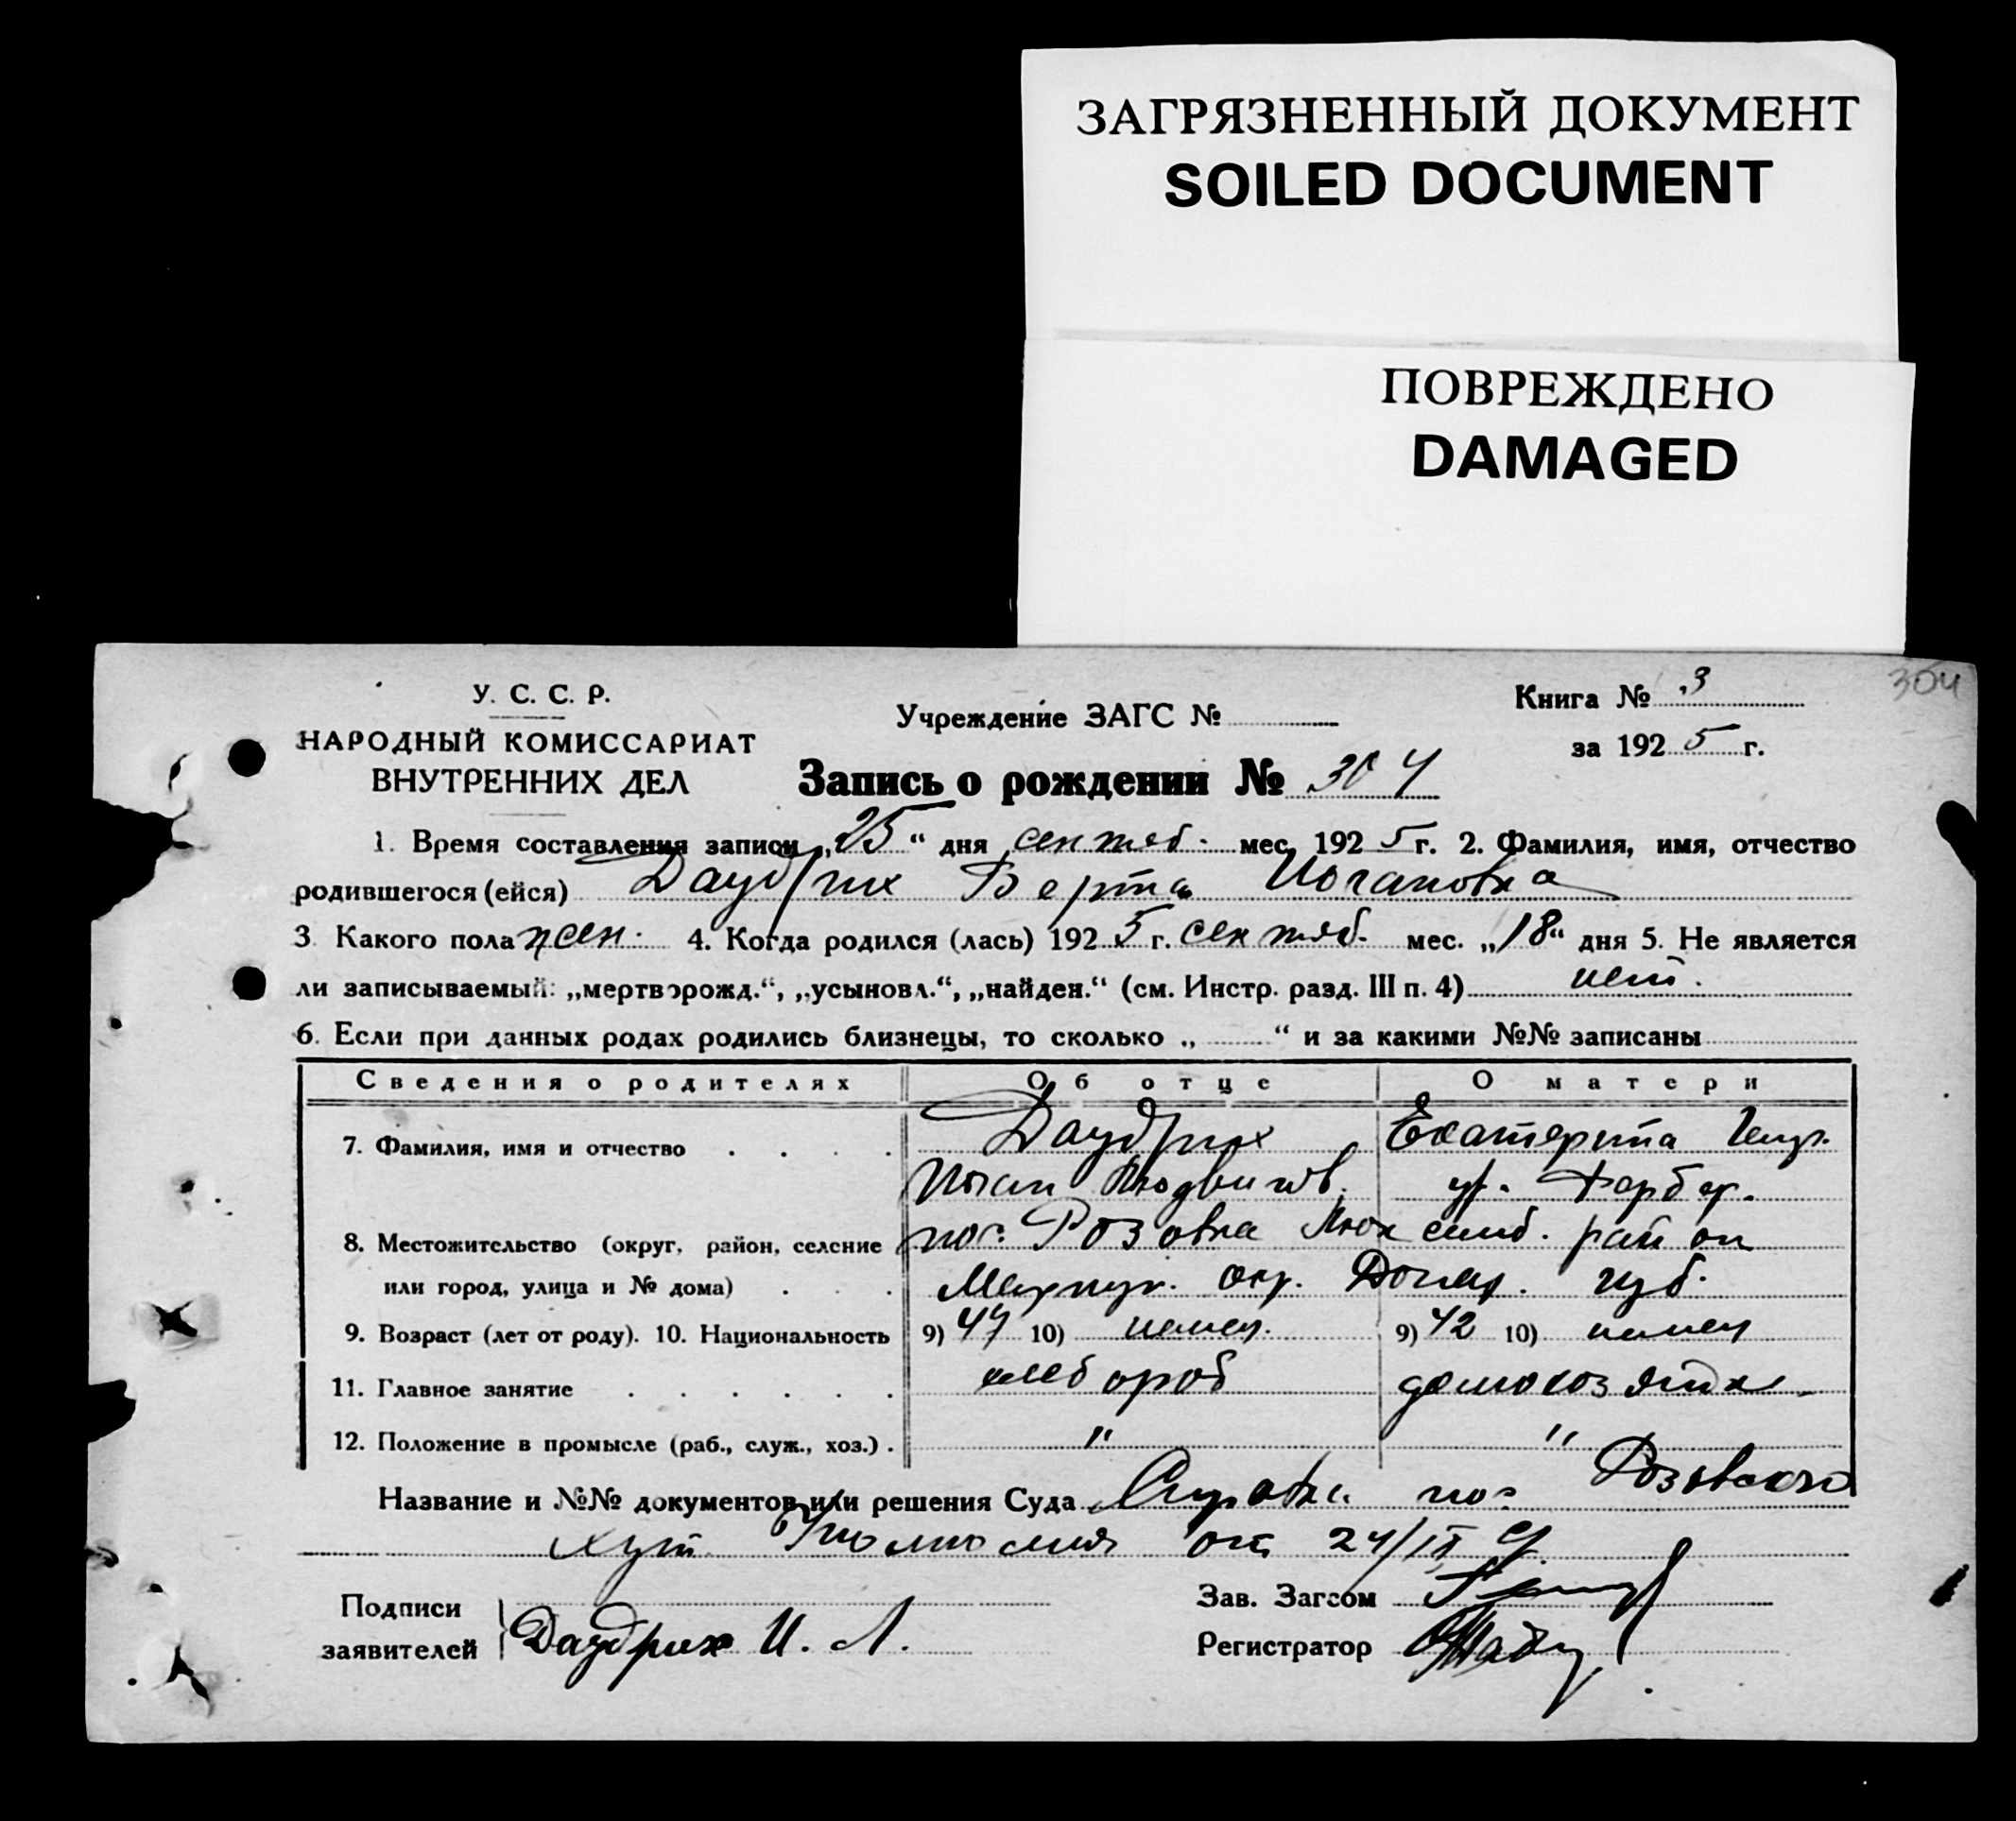 ЗАГРЯЗНЕННЫЙ ДОКУМЕНТ
SOILED DOCUMENT
ПОВРЕЖДЕНО
DAMAGED
304
У. С. С. Р.
НАРОДНЫЙ КОМИССАРИАТ
ВНУТРЕННИХ ДЕЛ
Учреждение ЗАГС №
Книга № 3
за 1925 г.
Запись о рождении № 304
1. Время составления записи „25“ дня сентяб. мес. 1925 г. 2. Фамилия, имя, отчество
родившегося (ейся) Даудрих Берта Иогановна
3. Какого пола жен. 4. Когда родился (лась) 1925 г. сентяб. мес. „18“ дня 5. Не является
ли записываемый: „мертворожд.“, „усыновл.“, „найден.“ (см. Инстр. разд. III п. 4) нет.
6. Если при данных родах родились близнецы, то сколько „ “ и за какими №№ записаны
Сведения о родителях Об отце О матери
7. Фамилия, имя и отчество Даудрих Екатерина
Иоган Людвигов. ур. Фербер.
8. Местожительство (округ, район, селение пос. Розовка Люксемб. район
или город, улица и № дома) Мариуп. окр. Донец. губ.
9. Возраст (лет от роду). 10. Национальность 9) 47 10) немец. 9) 42 10) немец
11. Главное занятие хлебороб домохозяйка.
12. Положение в промысле (раб., служ., хоз.) . " "
Название и №№ документов или решения Суда Справка пос Розовского
от 24/IX
Подписи
заявителей Даудрих И. Л.
Зав. Загсом
Регистратор